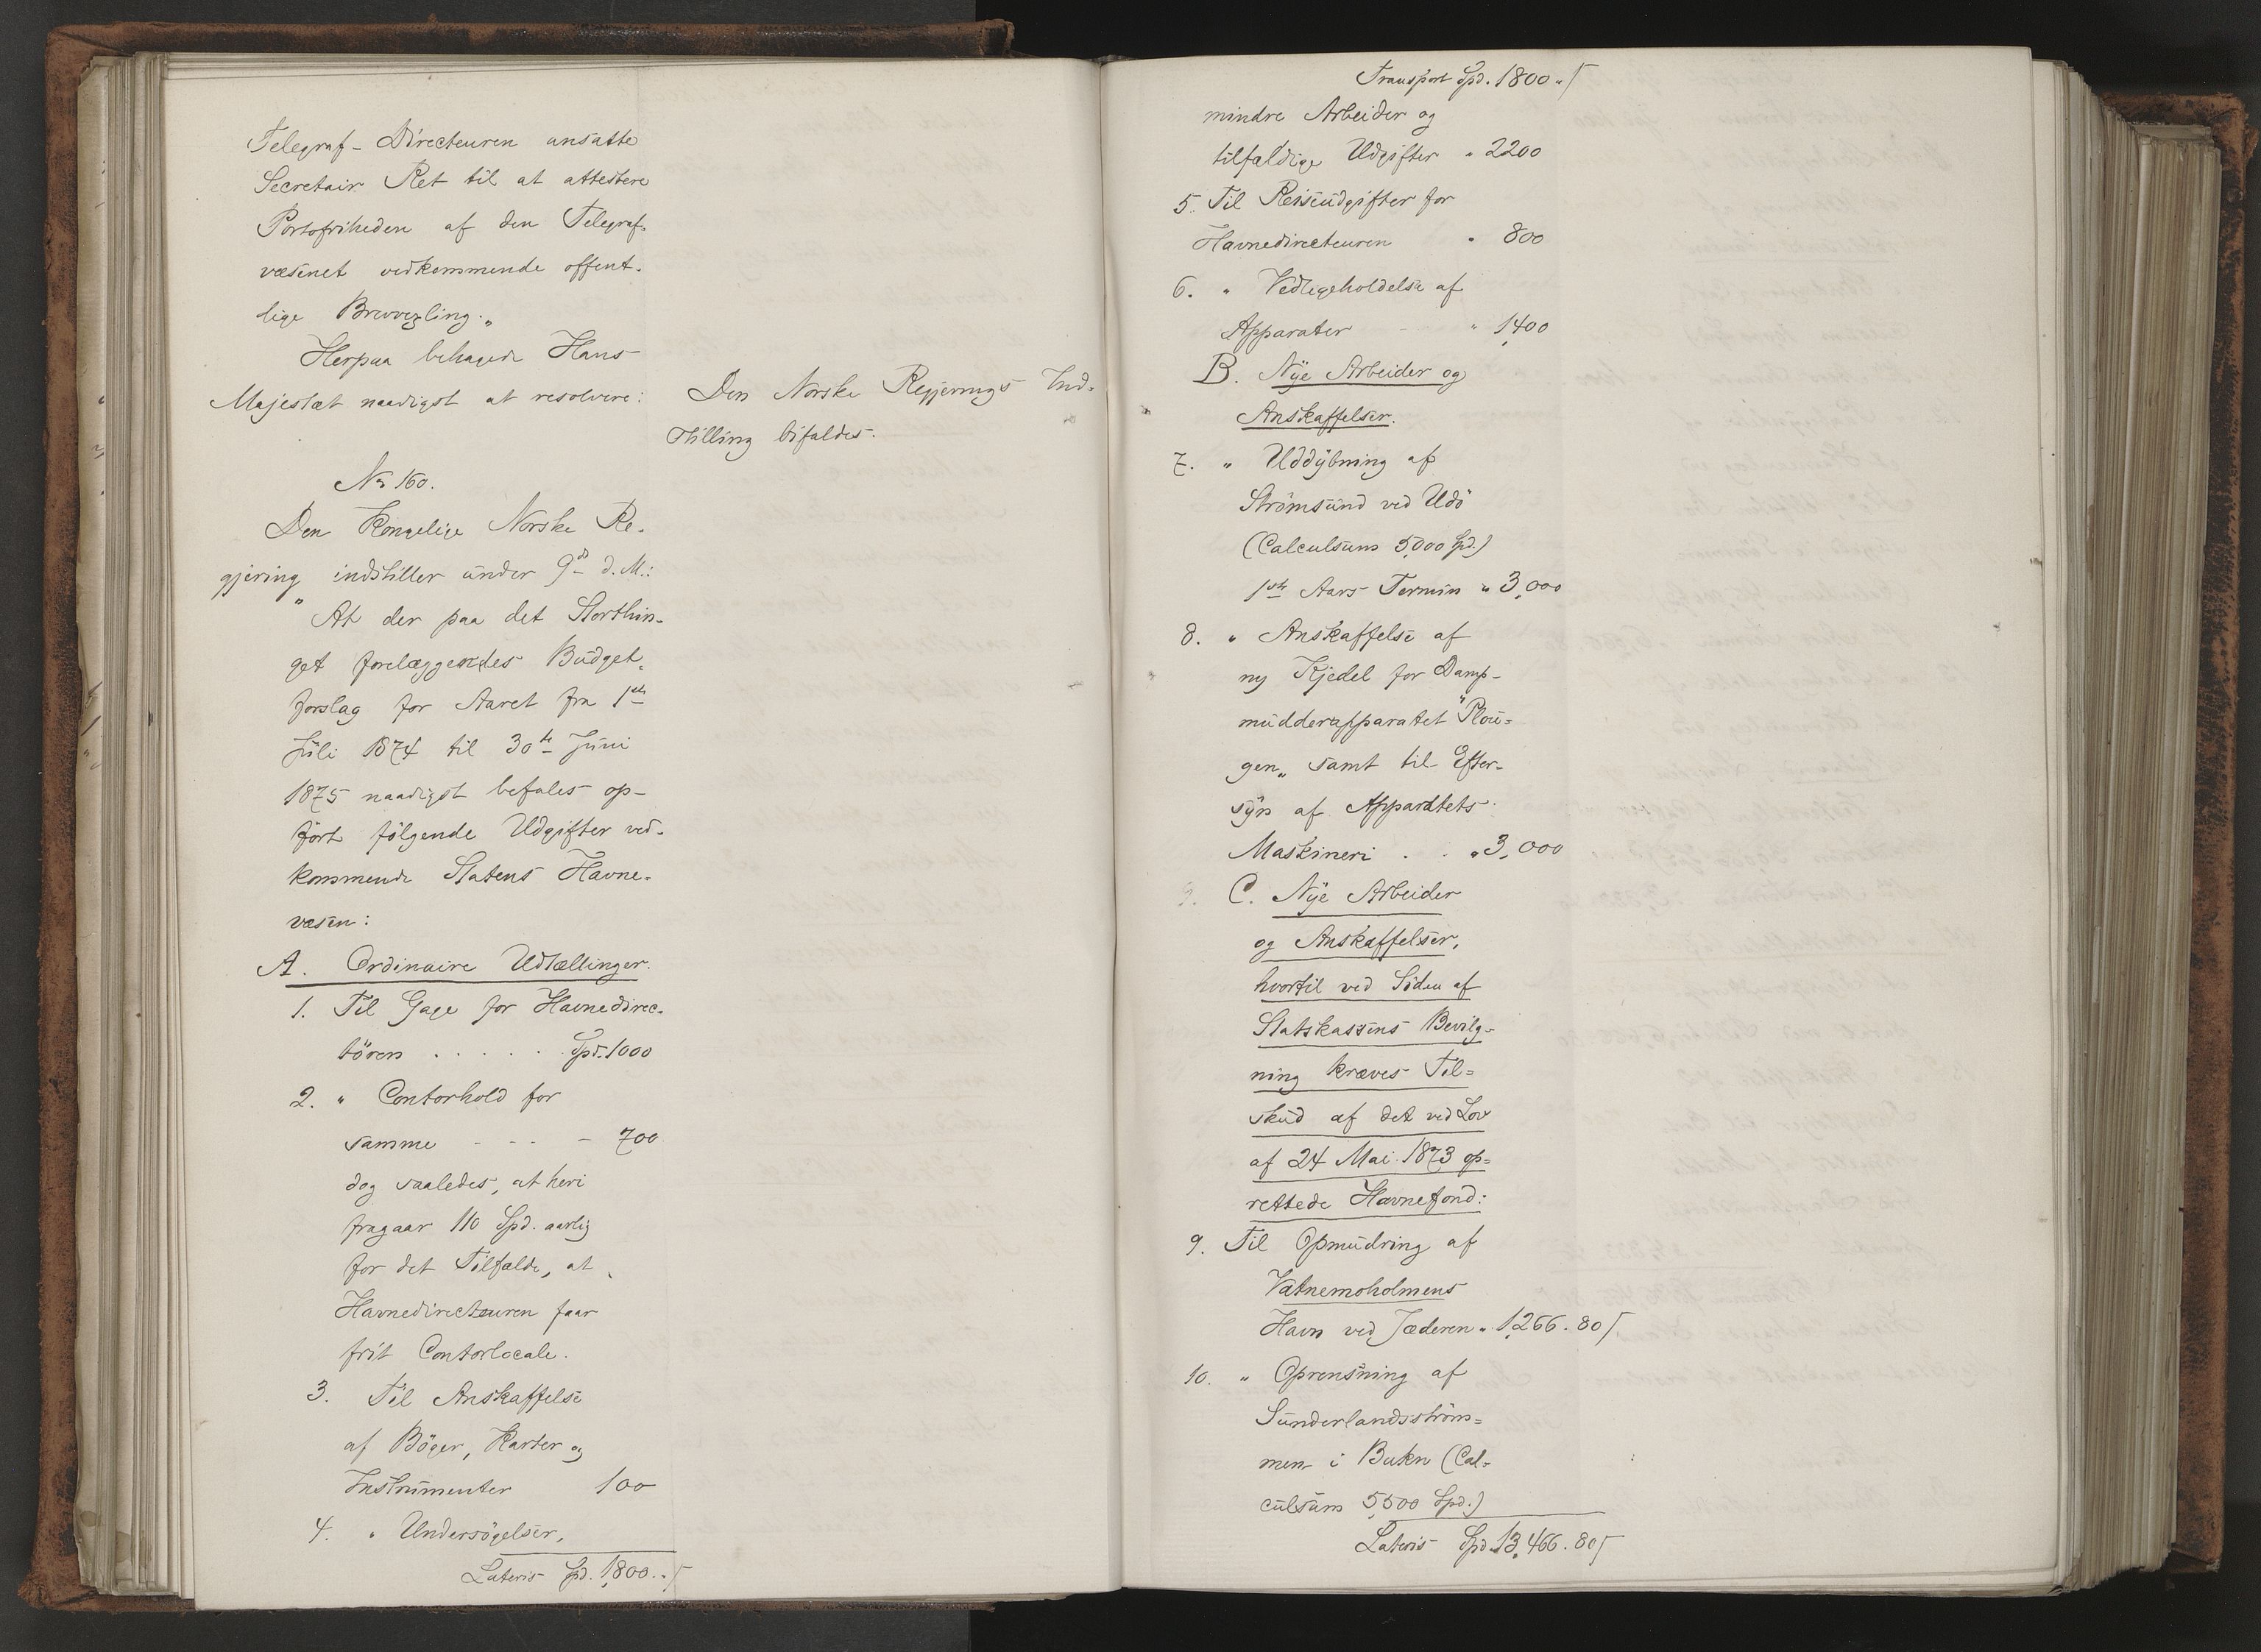 Telegraf-Directeuren ansatte
Secretair Ret til at attestere
Portofriheden af den Telegraf-
væsenet vedkommende offent-
lige Brevvexling."
Herpaa behagede Hans
Majestæt naadigst at resolvere:
Den Norske Regjerings Ind-
stilling bifaldes.
No 160.
Den Kongelige Norske Re-
gjering indstiller under 9de d. M.:
"At der paa det Storthin-
get forelæggendes Budget-
forslag for Aaret fra 1ste
Juli 1874 til 30te Juni
1875 naadigst befales op-
ført følgende Udgifter ved-
kommende Statens Havne-
væsen:
A. Ordinaire Udtællinger.
1. Til Gage for Havnedirec-
tören . . . . . Spd. 1000
2. " Contorhold for
samme - - - - 700
dog saaledes, at heri
fragaar 110 Spd. aarlig
for det Tilfælde, at
Havnedirecteuren faar
frit Contorlocale.
3. Til Anskaffelse
af Böger, Karter og
Instrumenter 100
4. " Undersögelser,
Lateris Spd. 1,800. "
Transport Spd. 1800. "
mindre Arbeider og
tilfældige Udgifter " 2200
5. Til Reiseudgifter for
Havnedirecteuren " 800
6. " Vedligeholdelse af
Apparater - - " 1,400
B. Nye Arbeider og
Anskaffelser.
7. " Uddybning af
Strömsund ved Udö
(Calculsum 5,000 Spd.)
1ste Aars Termin " 3,000
8. " Anskaffelse af
ny Kjedel for Damp-
mudderapparatet "Plou-
gen" samt til Efter-
syn af Apparatets
Maskineri . . " 3,000
9. C. Nye Arbeider
og Anskaffelser,
hvortil ved Siden af
Statskassens Bevilg-
ning kræves Til-
skud af det ved Lov
af 24 Mai 1873 op-
rettede Havnefond:
9. Til Opmudring af
Vatnemoholmens
Havn ved Jæderen " 1,266. 80
10. " Oprensning af
Sunderlandsström-
men i Bukn (Cal-
culsum 5,500 Spd.)
Lateris Spd. 13,466. 80